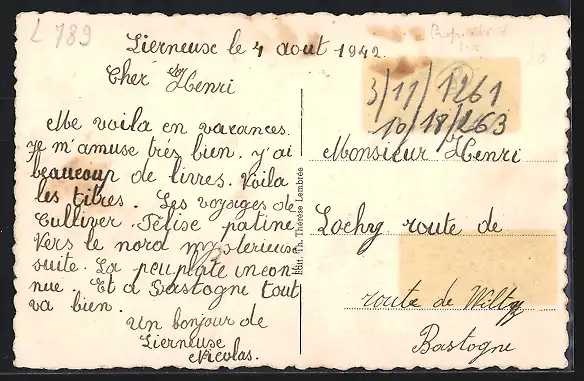 L 789
Lierneuse le 4 aout 1942.
Cher Henri
Me voila en vacances.
Je m'amuse très bien. y'ai
beaucoup de livres. Voila
les titres. Les voyages de
Gulliver. Félise patine
Vers le nord mysterieuse
suite. La peuplate incon-
nue. Et a Bastogne tout
va bien.
Un bonjour de
Lierneuse
Nicolas.
Edit. Th. Thérèse Lembrée
3/11/1261
10/18/263
Monsieur Henri
Lochy route de
route de Wiltz
Bastogne